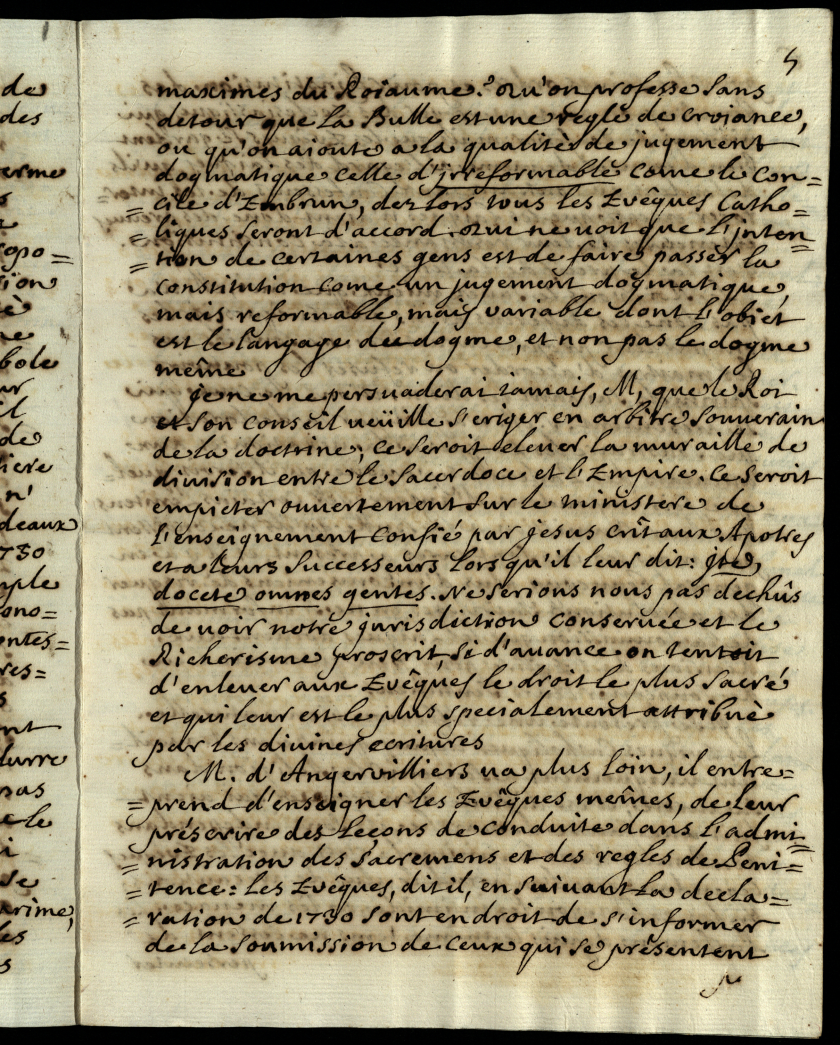 5
de
des
erme
s
opo=
ion
è
ne
bole
ur
il
de
iere
n'
deaux
730
mple
ono=
ontes=
res=
s
nt
lurre
pas
ele
i
se
arime,
les
s
maximes du Roiaume? Qu'on professe sans
detour que la Bulle est une regle de croiance,
ou qu'on aioute a la qualité de jugement
dogmatique celle d'jrreformable come le con=
=cile d'Embrun, dez lors tous les Evêques Catho=
=liques seront d'accord. Qui ne voit que l'jnten=
=tion de certaines gens est de faire passer la
constitution come un jugement dogmatique,
mais reformable, mais variable dont l'obiet
est le langage du dogme, et non pas le dogme
même
je ne me persuaderai iamais, M, que le Roi
et son conseil veüille s'eriger en arbitre souverain
de la doctrine; ce seroit elever la muraille de
division entre le sacerdoce et l'Empire. Ce seroit
empieter ouvertement sur le ministere de
l'enseignement confié par jesus crît aux Apotres
et a leurs successeurs lors qu'il leur dit: jte,
docete omnes gentes. Ne serions nous pas dechûs
de voir notre jurisdiction conservée et le
Richerisme proscrit, si d'avance on tentoit
d'enlever aux Evêques le droit le plus sacré
et qui leur est le plus specialement attribuè
par les divines ecritures
M. d'Angervilliers va plus loin, il entre=
=prend d'enseigner les Evêques meînes, de leur
préscrire des Leçons de conduite dans l'admi=
=nistration des sacremens et des regles de Peni=
=tence: les Evêques, dit il, en suivant la decla=
=ration de 1730 sont en droit de s'informer
de la soumission de ceux qui se présentent